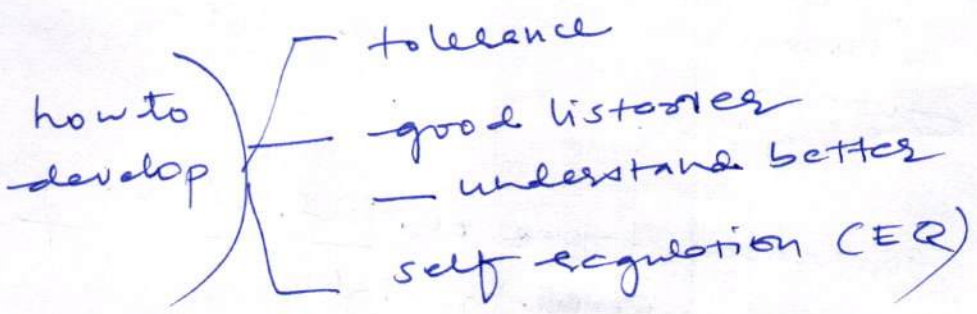 how to
develop
tolerance
good listener
— understand better
self regulation (EQ)